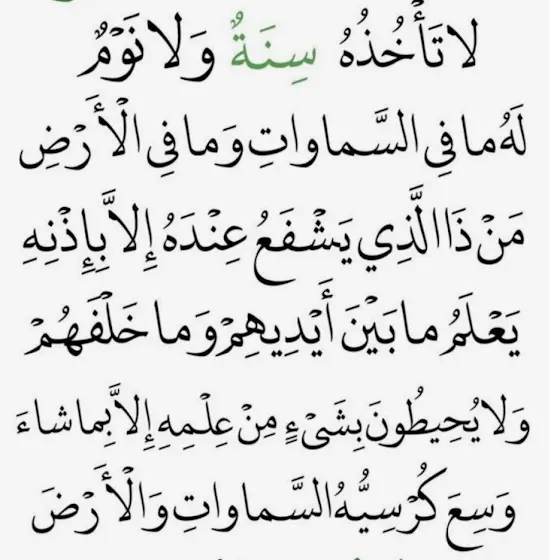 لَا تَأْخُذُهُ سِنَةٌ وَلَا نَوْمٌ
لَهُ مَا فِي السَّمَاوَاتِ وَمَا فِي الْأَرْضِ
مَنْ ذَا الَّذِي يَشْفَعُ عِنْدَهُ إِلَّا بِإِذْنِهِ
يَعْلَمُ مَا بَيْنَ أَيْدِيهِمْ وَمَا خَلْفَهُمْ
وَلَا يُحِيطُونَ بِشَيْءٍ مِنْ عِلْمِهِ إِلَّا بِمَا شَاءَ
وَسِعَ كُرْسِيُّهُ السَّمَاوَاتِ وَالْأَرْضَ